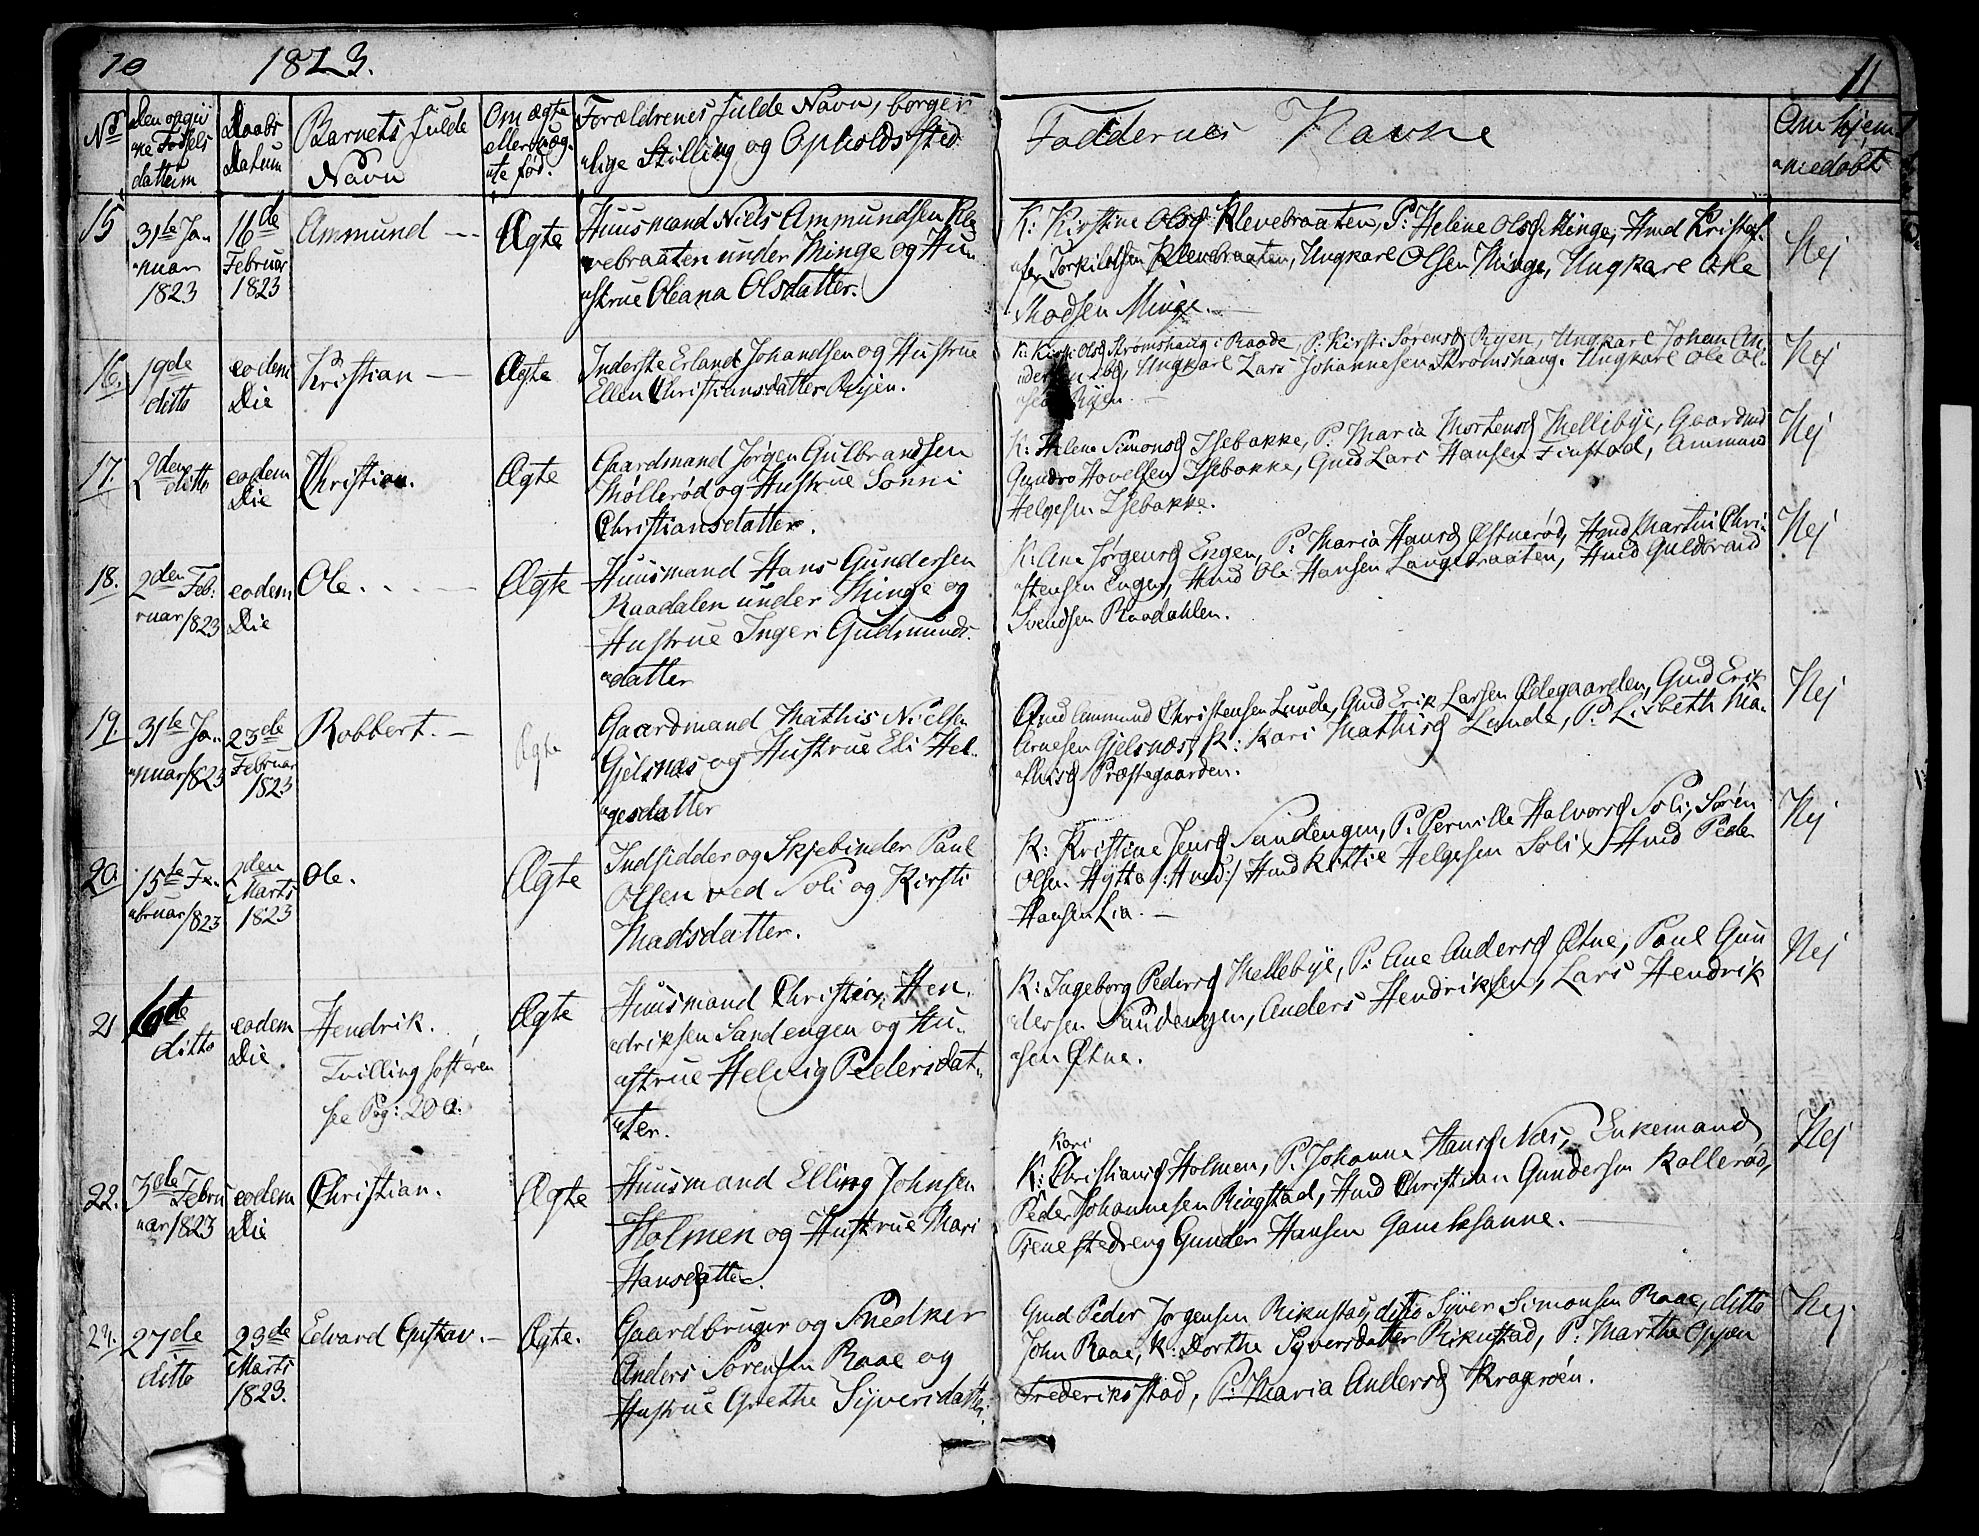 10
1823.
11
No
Den opgiv
ne Fødsels
datteim
Daabs
Datum
Barnets fulde
Navn
Om ægte
eller uæg-
te fød.
Forældrenes fulde Navn, borger
lige Stilling og Opholdssted
Faddernes Navne
Om hjem
medøbt
15
31te Ja-
nuar
1823
16de
Februar
1823
Ammund
Ægte
Huusmand Niels Ammundsen Kle
vebraaten under Minge og Hu-
strue Oleana Olsdatter.
K: Kirstine Olsd Klevebraaten, P: Helene Olsd Minge, Hmd Kristof-
fer Torkildsen Klevebraaten, Ungkarl Olsen Minge, Ungkarl Ole
Madsen Minge.
Nej
16.
19de
ditto
eodem
Die
Kristian
Ægte
Inderste Erland Johandsen og Hustrue
Ellen Christiansdatter Ryen.
K: Kirsti Olsd Strømshaug i Raade, P: Kirsti Sørensd Ryen, Ungkarl Johan An-
dersen, Ungkarl Lars Johannesen Strømshaug. Ungkarl Ole Ol-
sen Ryen.
Nej
17.
2den
ditto
eodem
Die
Christian.
Ægte
Gaardmand Jørgen Gulbrandsen
Møllerød og Hustrue Sonni
Christiansdatter.
K: Helene Simonsd Isebakke, P: Maria Mortensd Mellebye, Gaardmd
Gundro Hovelsen Isebakke, Gmd Lars Hansen Finstad, Ammund
Helgesen Isebakke.
Nej
18.
2den Feb:
ruar 1823
eodem
Die
Ole.
Ægte
Huusmand Hans Gundersen
Raadalen under Minge og
Hustrue Inger Gudmunds-
datter
K: Ane Jørgensd Engen, P: Maria Hansd Østnerød, Hmd Martin Chri-
stensen Engen, Hmd Ole Hansen Langebraaten, Hmd Guldbrand
Svendsen Raadahlen.
Nej
19.
31te Ja-
nuar 1823
23de
Februar
1823
Robbert.
Ægte
Gaardmand Mathis Nielsen
Gjelsnæs og Hustrue Eli Hel-
gesdatter
Gmd Ammund Christensen Lunde, Gmd Erik Larsen Ødegaarden, Gmd Erik
Arnesen Gjelsnæs, K: Kari Mathisd Lunde, P: Lisbeth Ma-
thisd Præstegaarden.
Nej
20.
15te Fe-
bruar 1823
2den
Marts
1823
Ole.
Ægte
Indsidder og Skjebinder Paul
Olsen ved Soli og Kirsti
Madsdatter.
K: Kristine Jensd Sandengen, P: Pernille Halvorsd Soli, Søren
Olsen Hytta /: Hmd :/ Hmd Kittie Helgesen Soli, Hmd Peder
Hansen Lia.
Nej
21
16de
ditto
eodem
Die
Hendrik.
Tvilling søsteren
see Pag: 200.
Ægte
Huusmand Christian Hen-
driksen Sandengen og Hu-
strue Helvig Pedersdat-
ter.
K: Ingeborg Pedersd Mellebye, P: Ane Andersd Øtne, Paul Gun
dersen Sandengen, Anders Hendriksen, Lars Hendrik
sen Øtne.
Nej
22.
3de Febru
ar 1823
eodem
Die
Christian.
Ægte
Huusmand Elling Johnsen
Holmen og Hustrue Mari
Hansdatter.
Kari
K: Christiansd Holmen, P: Johanne Hansd Næs, Enkemand
Peder Johannesen Ringstad, Hmd Christian Gundersen Kallerød,
Tienestedreng Gunder Hansen Gamlesanne.
Nej
27de
ditto
29de
Marts
1823.
Edvard Gustav.
Ægte.
Gaardbruger og Snedker
Anders Sørensen Raae og
Hustrue Grethe Syversdatter.
Gmd Peder Jørgensen Rikustad, ditto Syver Simonsen Raae, ditto
John Raae, K: Dorthe Syversdatter Rikustad, P: Marthe Oppen
Frederiksstad, P: Maria Andersd Kragerøen.
Nej.